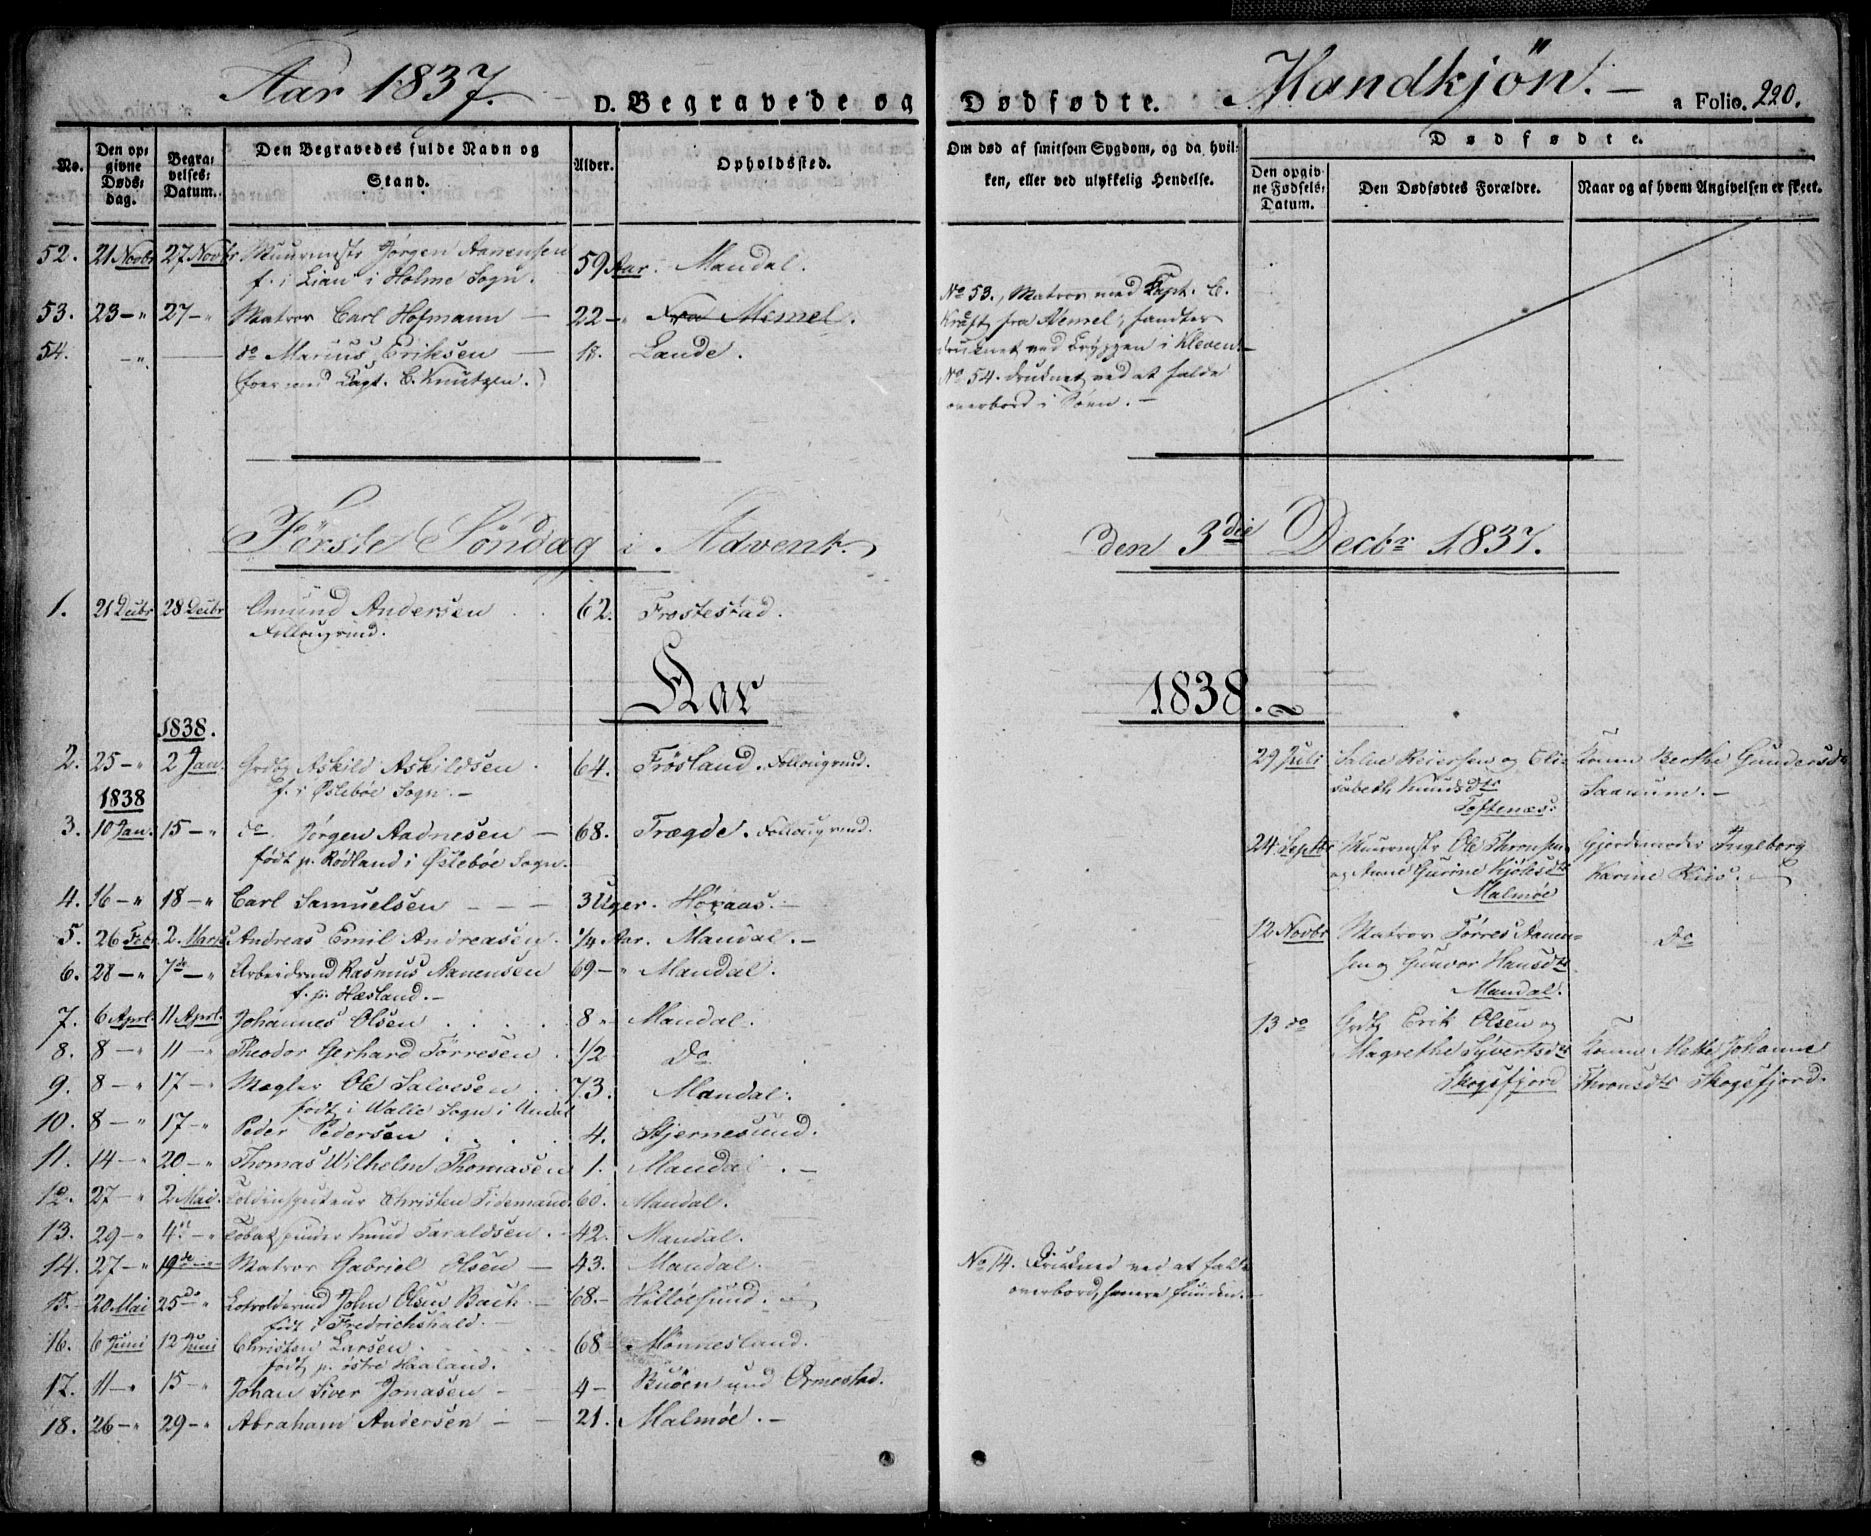 Aar 1837. D. Begravede og Dødfødte. Mandkjøn. a Folio. 220.
No.
Den opgivne Døds-dag.
Begravelses-Datum.
Den Begravedes fulde Navn og Stand.
Alder.
Opholdssted.
Om død af smitsom Sygdom, og da hvilken, eller ved ulykkelig Hendelse.
Dødfødte.
Den opgivne Fødsels-Datum.
Den Dødfødtes Forældre.
Naar og af hvem Angivelsen er skeet.
52. 21 Novbr 27 Novbr Muurmstr Jørgen Aanensen 59 Aar. Mandal.
f. i Lian i Holme Sogn.
53. 23 - " 27 - " Matros Carl Hofmann - 22 - " Fra Memel.
54. - " do Marius Eriksen - 18. Lande.
(foer med Capt. C. Knutzen.)
No 53, Matros med Capt. C.
Kraft fra Memel, fandtes
druknet ved Bryggen i Kleven. -
No 54. druknet ved at falde
overbord i Søen. -
Første Søndag i Advent. den 3die Decbr 1837.
1. 21 Decbr 28 Decbr Omund Andersen 62. Frostestad.
Follougmd.
Aar 1838.
1838.
2. 25 - " 2 Jan. Grdbr Askild Askildsen 64. Frøsland. Follougmd.
f. i Øslebøe Sogn. -
1838
3. 10 Jan. 15 - " do. Jørgen Aadnesen - 68. Trægde. Follougmd.
født p. Rødland i Øslebøe Sogn.
4. 16 - " 18 - " Carl Samuelsen - - - 3 Uger. Høraas. -
5. 26 Febr 2 Marts Andreas Emil Andreasen. 1/4 Aar. Mandal. -
6. 28 - " 7de - " Arbeidsmd Rasmus Aanensen 69 - " Mandal.
f. p. Hæsland. -
7. 6 Aprl. 11 Aprl. Johannes Olsen 8 " Mandal.
8. 8 - " 11 - " Theodor Gerhard Tørresen 1/2 Do
9. 8 - " 17 - " Mægler Ole Salvesen 73. Mandal.
født i Walle Sogn i Undal
10. 8 - " 17 - " Peder Pedersen 4. Stjernesund.
11. 14 - " 20 - " Thomas Wilhelm Thomasen 1. Mandal. -
12. 27 - " 2 Mai. Toldinspecteur Christen Tidemand. 60. Mandal.
13. 29 - " 4de - " Tobakspinder Knud Taraldsen. 42. Mandal.
14. 27 - " 19de - " Matros Gabriel Olsen - 43. Mandal.
15. 20 Mai 25de " Lodsoldermd John Olsen Bach - 68. - Hilløesund.
født i Fredrichshald. -
16. 6 Juni 12 Juni Christen Larsen 68 Mønnesland.
født p. østre Haaland.
17. 11 - " 15 - " Johan Siver Jonasen - 4 - Buøen und Ormestad.
18. 26 - " 29 - " Abraham Andersen - - 21. Malmøe. -
29 Juli Salve Reiersen og Eli-
sabeth Knudsdtr
Toftenæs.
Konen Berthe Gundersdtr
Saanum. -
24 Septbr Muurmstr Ole Thronsen
og Anne Gurine Kjølesdtr
Malmøe
Gjordemoder Ingeborg
Karine Kiis. -
12 Novbr Matros Tørres Aanen-
sen og Gunvor Hansdtr
Mandal.
Do
13 do Grdbr Erik Olsen og
Magrethe Syvertsdtr
Skogsfjord
Konen Mette Johanne
Thronsdtr Skogsfjord.
No 14. Druknet ved at falde
overbord, senere funden. -